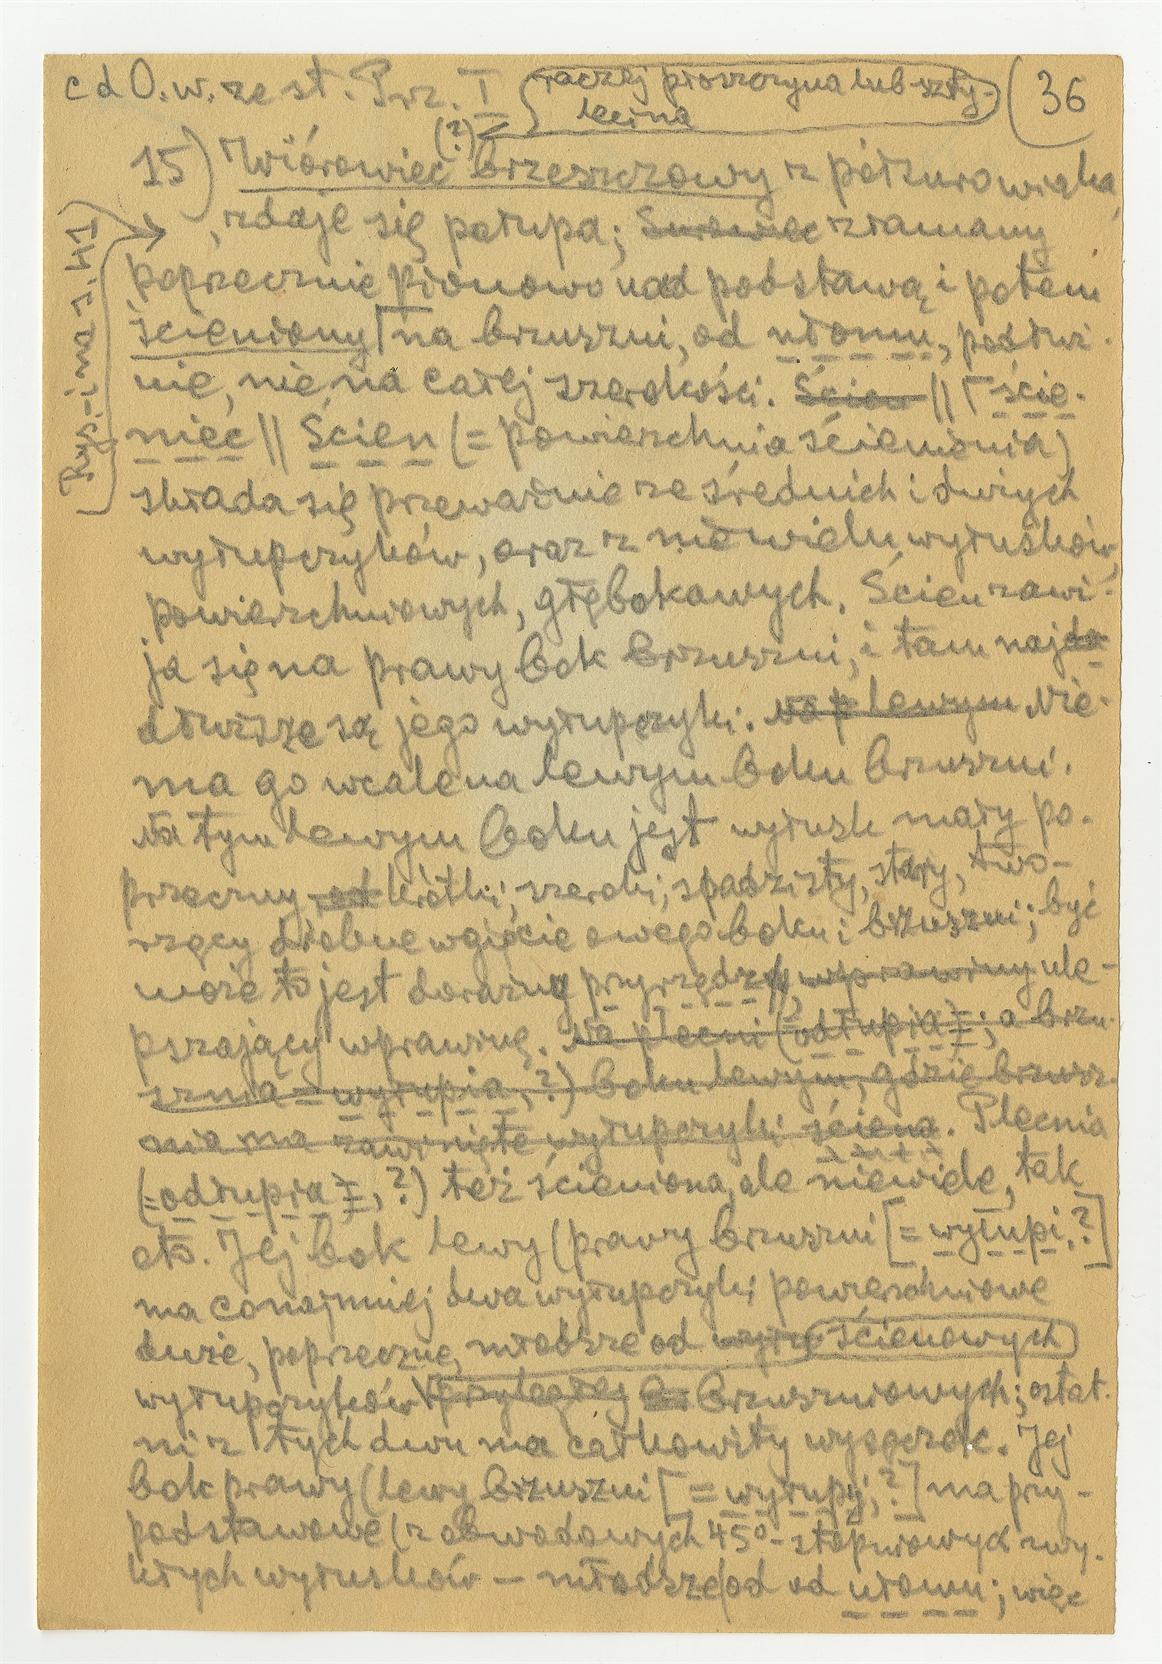 c d O. w. ze st. Prz. I (raczej płoszczyna lub szty-
lecina
36
15) Wiórowiec (?) brzeszczowy z półsurowiaka,
zdaje się połupa; Surowiec złamany
poprzecznie pionowo nad podstawą i potem
ścieniony na brzuszni, od ułomu, podłuż-
nie, nie na całej szerokości. Ścion || ście-
niec || Ścien (= powierzchnia ścienienia)
składa się przeważnie ze średnich i dużych
wyłupczyków, oraz z niewielu wyłusków,
powierzchniowych, głębokawych. Ścien zawi-
ja się na prawy bok brzuszni, i tam naj
dłuższe są jego wyłupczyki. Na p lewym Nie-
ma go wcale na lewym boku brzuszni.
Na tym lewym boku jest wyłusk mały po-
przeczny od krótki, szeroki, spadzisty, stary, two-
rzący drobne wgięcie owego boku i brzuszni; być
może to jest doraźny przyrządzik, wprawiny ule-
pszający wprawinę. Na plecni (= odłupia); a brzu-
sznia = wyłupia, ?) boku lewym, gdzie brzusz-
nia ma zawinięte wyłupczyki ściena. Plecnia
(= odłupia, ?) też ścieniona, ale niewiele, tak
oto. Jej bok lewy (prawy brzuszni [= wyłupi, ?]
ma conajmniej dwa wyłupczyki powierzchniowe
duże, poprzeczne, młodsze od ścienowych
wyłupczyków przyległej brzuszniowych; ostat-
ni z tych dwu ma całkowity wysęczek. Jej
bok prawy (lewy brzuszni [= wyłupi, ?] ma przy-
podstawowe (z obwodowych 45°-stopniowych zwy-
kłych wyłusków – młodsze od ułomu; więc
Rys-i na s. 41